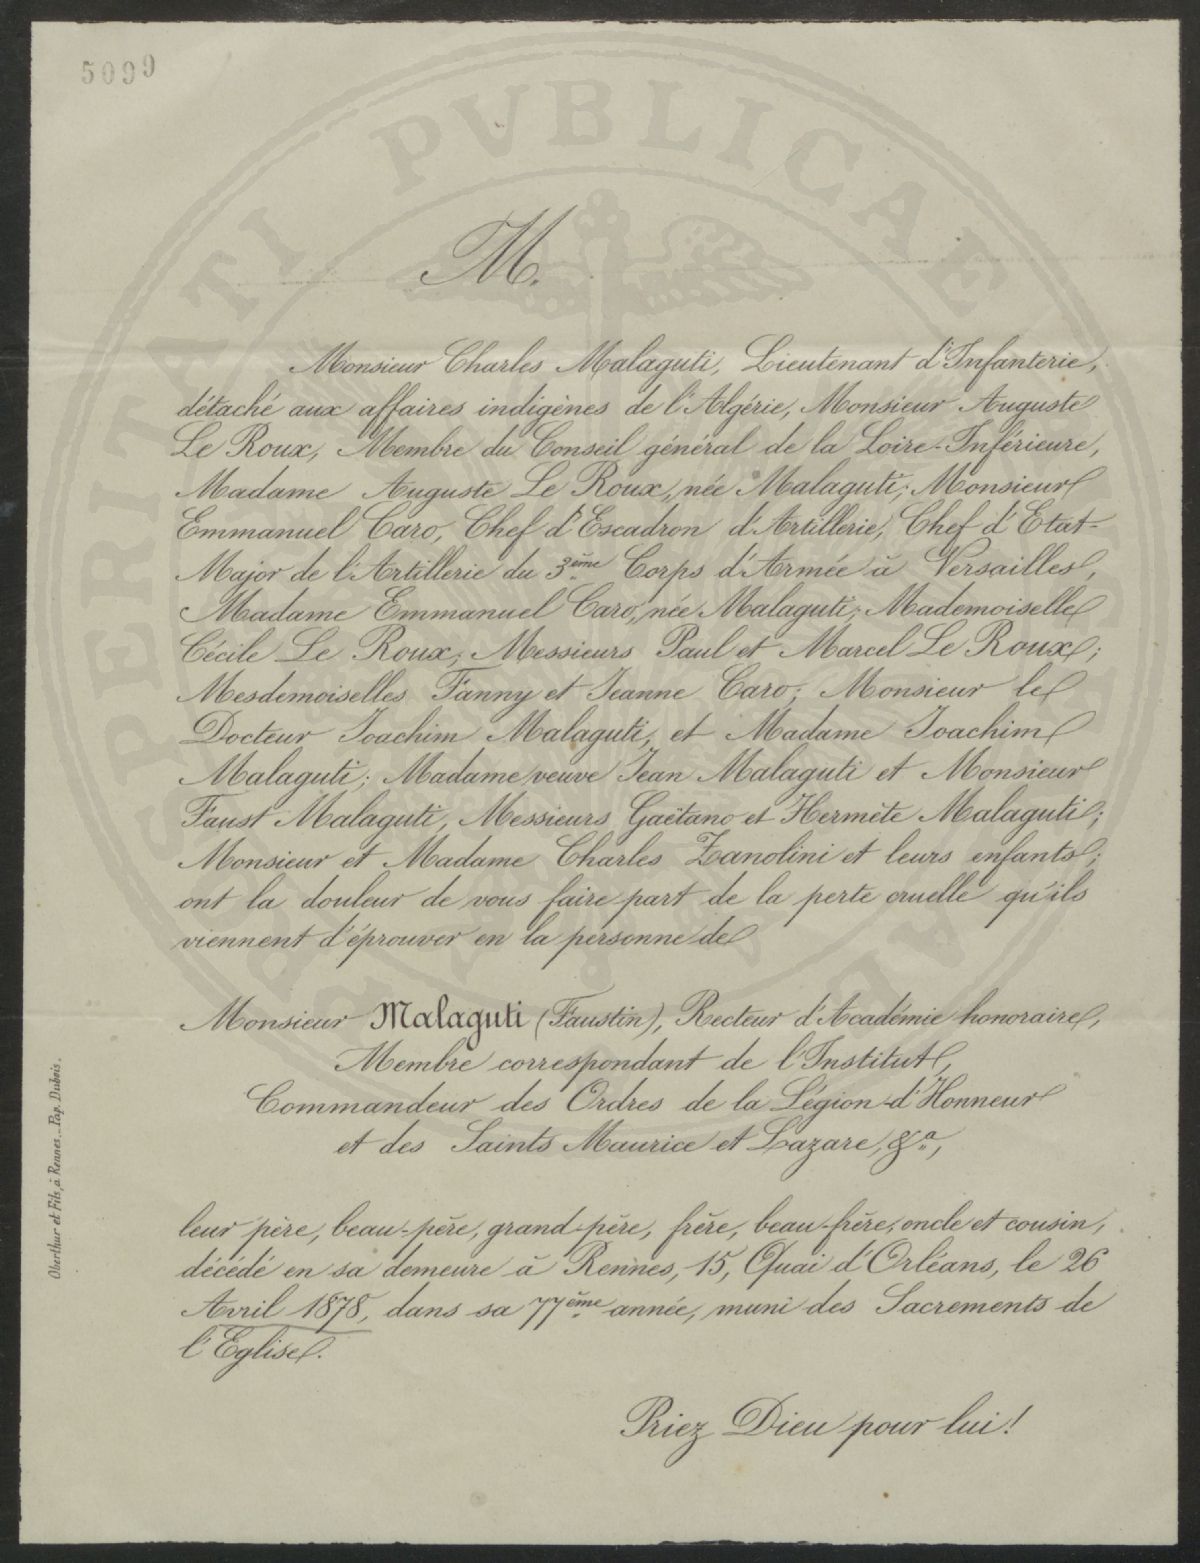 5099
PERITATI PVBLICAE
M.
Monsieur Charles Malaguti, Lieutenant d'Infanterie,
détaché aux affaires indigènes de l'Algérie, Monsieur Auguste
Le Roux, Membre du Conseil général de la Loire-Inférieure,
Madame Auguste Le Roux, née Malaguti; Monsieur
Emmanuel Caro, Chef d'Escadron d'Artillerie, Chef d'Etat-
Major de l'Artillerie du 3ème Corps d'Armée à Versailles,
Madame Emmanuel Caro, née Malaguti; Mademoiselle
Cécile Le Roux; Messieurs Paul et Marcel Le Roux;
Mesdemoiselles Fanny et Jeanne Caro; Monsieur le
Docteur Joachim Malaguti, et Madame Joachim
Malaguti; Madame veuve Jean Malaguti et Monsieur
Faust Malaguti, Messieurs Gaëtano et Hermète Malaguti;
Monsieur et Madame Charles Zanolini et leurs enfants;
ont la douleur de vous faire part de la perte cruelle qu'ils
viennent d'éprouver en la personne de
Monsieur Malaguti (Faustin), Recteur d'Académie honoraire,
Membre correspondant de l'Institut,
Commandeur des Ordres de la Légion-d'Honneur
et des Saints Maurice et Lazare, &a,
leur père, beau-père, grand-père, frère, beau-frère, oncle et cousin,
décédé en sa demeure à Rennes, 15, Quai d'Orléans, le 26
Avril 1878, dans sa 77ème année, muni des Sacrements de
l'Eglise.
Priez Dieu pour lui!
Oberthur et Fils, à Rennes._Pap. Dubois.